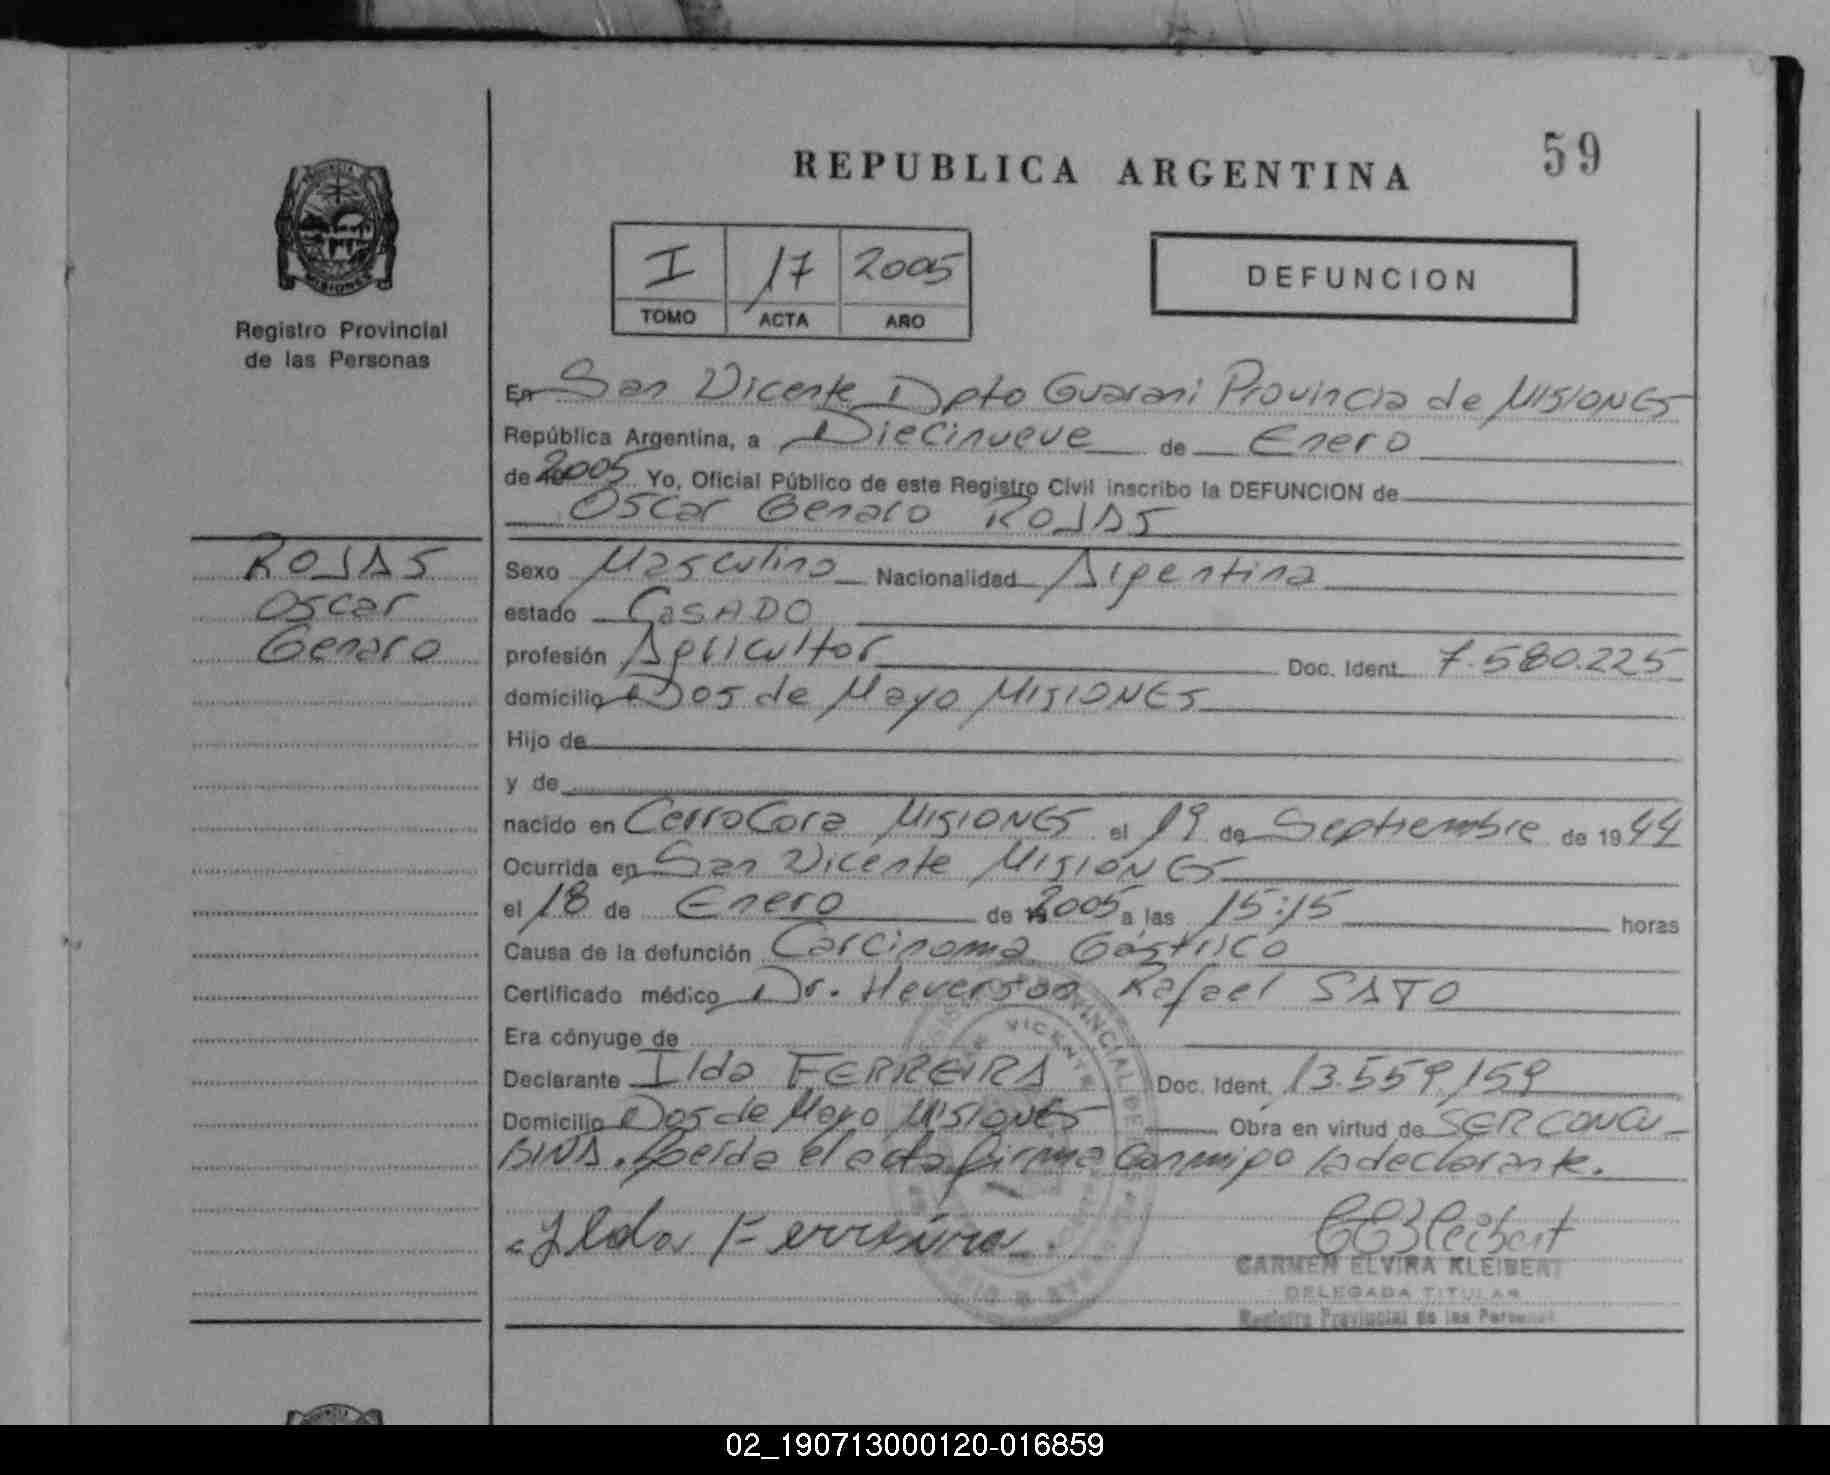 59
REPUBLICA ARGENTINA
I 17 2005
TOMO ACTA AÑO
DEFUNCION
MISIONES
Registro Provincial
de las Personas
ROJAS
Oscar
Genaro
En San Vicente Dpto Guarani Provincia de MISIONES
República Argentina, a Diecinueve de Enero
de 2005 Yo, Oficial Público de este Registro Civil inscribo la DEFUNCION de
Oscar Genaro ROJAS
Sexo Masculino Nacionalidad Argentina
estado CASADO
profesión Agricultor Doc. Ident. 7.580.225
domicilio Dos de Mayo MISIONES
Hijo de
y de
nacido en Cerro Cora MISIONES el 19 de Septiembre de 1944
Ocurrida en San Vicente MISIONES
el 18 de Enero de 2005 a las 15:15 horas
Causa de la defunción Carcinoma Gástrico
Certificado médico Dr. Heverson Rafael SATO
Era cónyuge de
Declarante Ilda FERREIRA Doc. Ident. 13.559.159
Domicilio Dos de Mayo MISIONES Obra en virtud de SER CONCU-
BINA. Leida el acta firma conmigo la declarante.
Ilda Ferreira
CARMEN ELVIRA KLEIBERT
DELEGADA TITULAR
Registro Provincial de las Personas
02_190713000120-016859